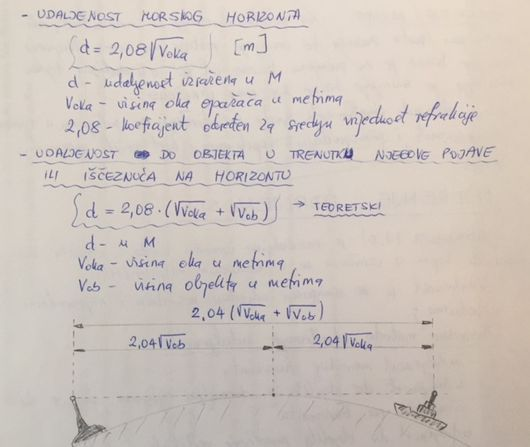 - UDALJENOST MORSKOG HORIZONTA
d = 2,08√Voka [m]
d - udaljenost izražena u M
Voka - visina oka opažača u metrima
2,08 - koeficijent određen za srednju vrijednost refrakcije
- UDALJENOST DO OBJEKTA U TRENUTKU NJEGOVE POJAVE
ILI IŠČEZNUĆA NA HORIZONTU
d = 2,08 · (√Voka + √Vob) → TEORETSKI
d - u M
Voka - visina oka u metrima
Vob - visina objekta u metrima
2,04 (√Voka + √Vob)
2,04√Vob 2,04√Voka